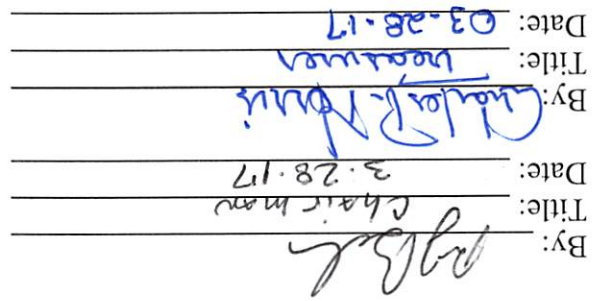 By:
Title: Chairman
Date: 3.28.17
By: Charles R. Norris
Title: Treasurer
Date: 03-28-17